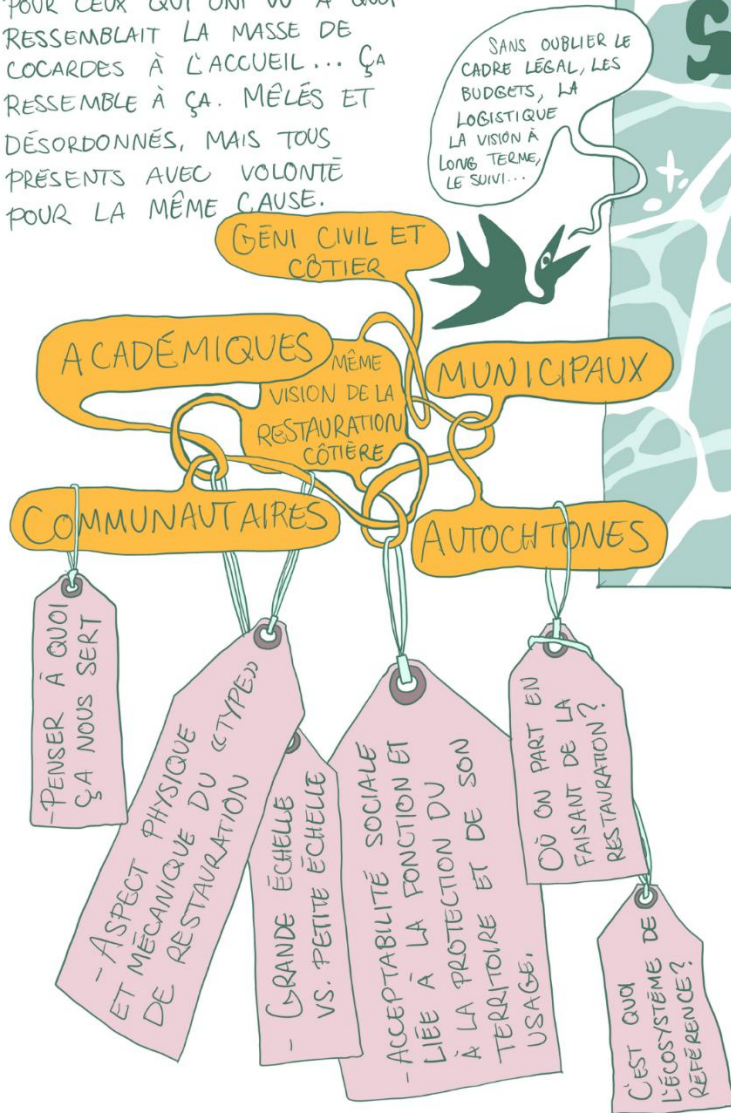 POUR CEUX QUI ONT VU À QUOI
RESSEMBLAIT LA MASSE DE
COCARDES À L'ACCUEIL... ÇA
RESSEMBLE À ÇA. MÊLÉS ET
DÉSORDONNÉS, MAIS TOUS
PRÉSENTS AVEC VOLONTÉ
POUR LA MÊME CAUSE.
SANS OUBLIER LE
CADRE LÉGAL, LES
BUDGETS, LA
LOGISTIQUE
LA VISION À
LONG TERME,
LE SUIVI...
S
GÉNI CIVIL ET
CÔTIER
ACADÉMIQUES
MÊME
VISION DE LA
RESTAURATION
CÔTIÈRE
MUNICIPAUX
COMMUNAUTAIRES
AUTOCHTONES
-PENSER À QUOI
ÇA NOUS SERT
- ASPECT PHYSIQUE
ET MÉCANIQUE DU «TYPE»
DE RESTAURATION
- GRANDE ÉCHELLE
VS. PETITE ÉCHELLE
-ACCEPTABILITÉ SOCIALE
LIÉE À LA FONCTION ET
À LA PROTECTION DU
TERRITOIRE ET DE SON
USAGE.
OÙ ON PART EN
FAISANT DE LA
RESTAURATION?
C'EST QUOI
L'ÉCOSYSTÈME DE
RÉFÉRENCE?